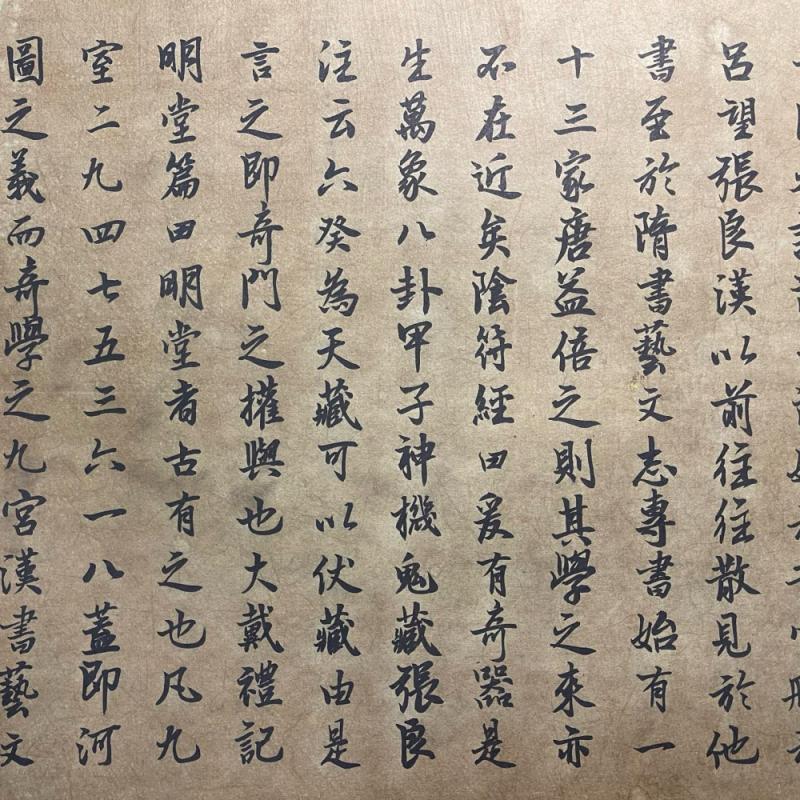 呂望張良漢以前往往散見於他
書至於隋書藝文志專書始有一
十三家唐益倍之則其學之來亦
不在近矣陰符經田爰有奇器是
生萬象八卦甲子神機鬼藏張良
注云六癸為天藏可以伏藏由是
言之即奇門之權與也大戴禮記
明堂篇田明堂者古有之也凡九
室二九四七五三六一八蓋即河
圖之義而奇學之九宮漢書藝文